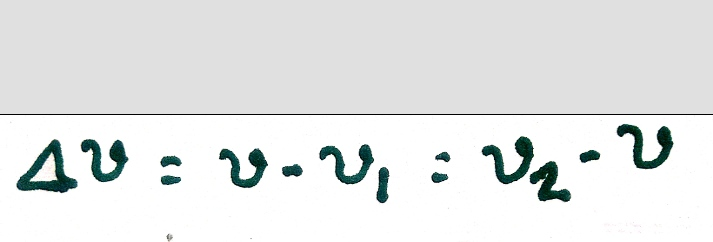 Δv = v - v₁ = v₂ - v